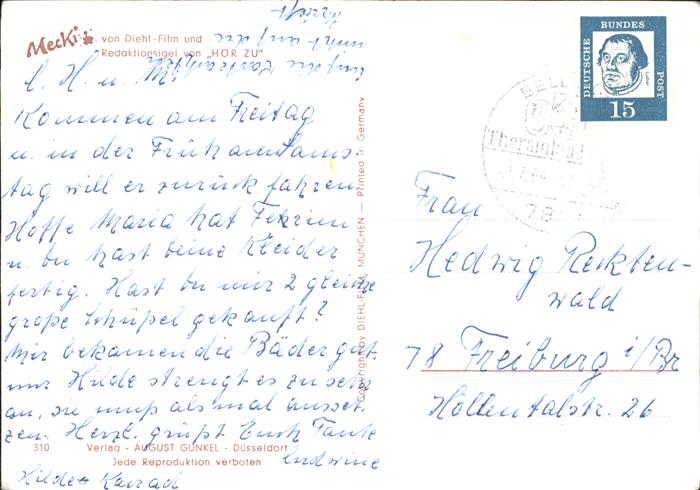 Mecki
von Diehl-Film und
Redaktionsigel von „HÖR ZU"
l. H. u.
Kommen am Freitag
u. in der Früh am Sams-
tag will er zurück fahren
Hoffe Maria hat Ferien
u. du hast deine Kleider
fertig. Hast du mir 2 gleiche
große Schüßel gekauft?
Mir bekamen die Bäder gut.
nur Hilde strengt es zu sehr
an, sie muß als mal ausset-
zen, Herzl. grüßt Euch Tante
Ludwine
Hilde + Konrad
310
Verlag - AUGUST GUNKEL - Düsseldorf
Jede Reproduktion verboten
Copyright by DIEHL-FILM, MÜNCHEN — Printed in Germany
DEUTSCHE
BUNDES
POST
15
BELL
Thermal
.7.64
78
Frau
Hedwig Reckten-
wald
78 Freiburg i/Br
Höllentalstr. 26